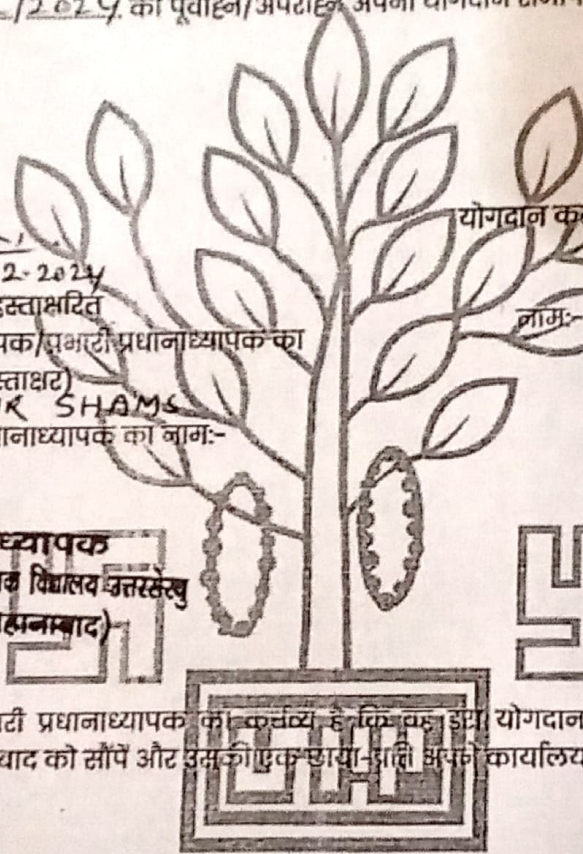 /2024 को पूर्वाह्न/अपराह्न अपना योगदान
योगदान कर
2-2024
हस्ताक्षरित
पक/प्रभारी प्रधानाध्यापक का
नाम:-
स्ताक्षर)
R SHAMS
ानाध्यापक का नाम:-
ध्यापक
क विद्यालय उत्तरसेरथु
हानाबाद)
री प्रधानाध्यापक का कर्तव्य है कि वह इस योगदान
बाद को सौंपें और उसकी एक छाया-प्रति अपने कार्यालय